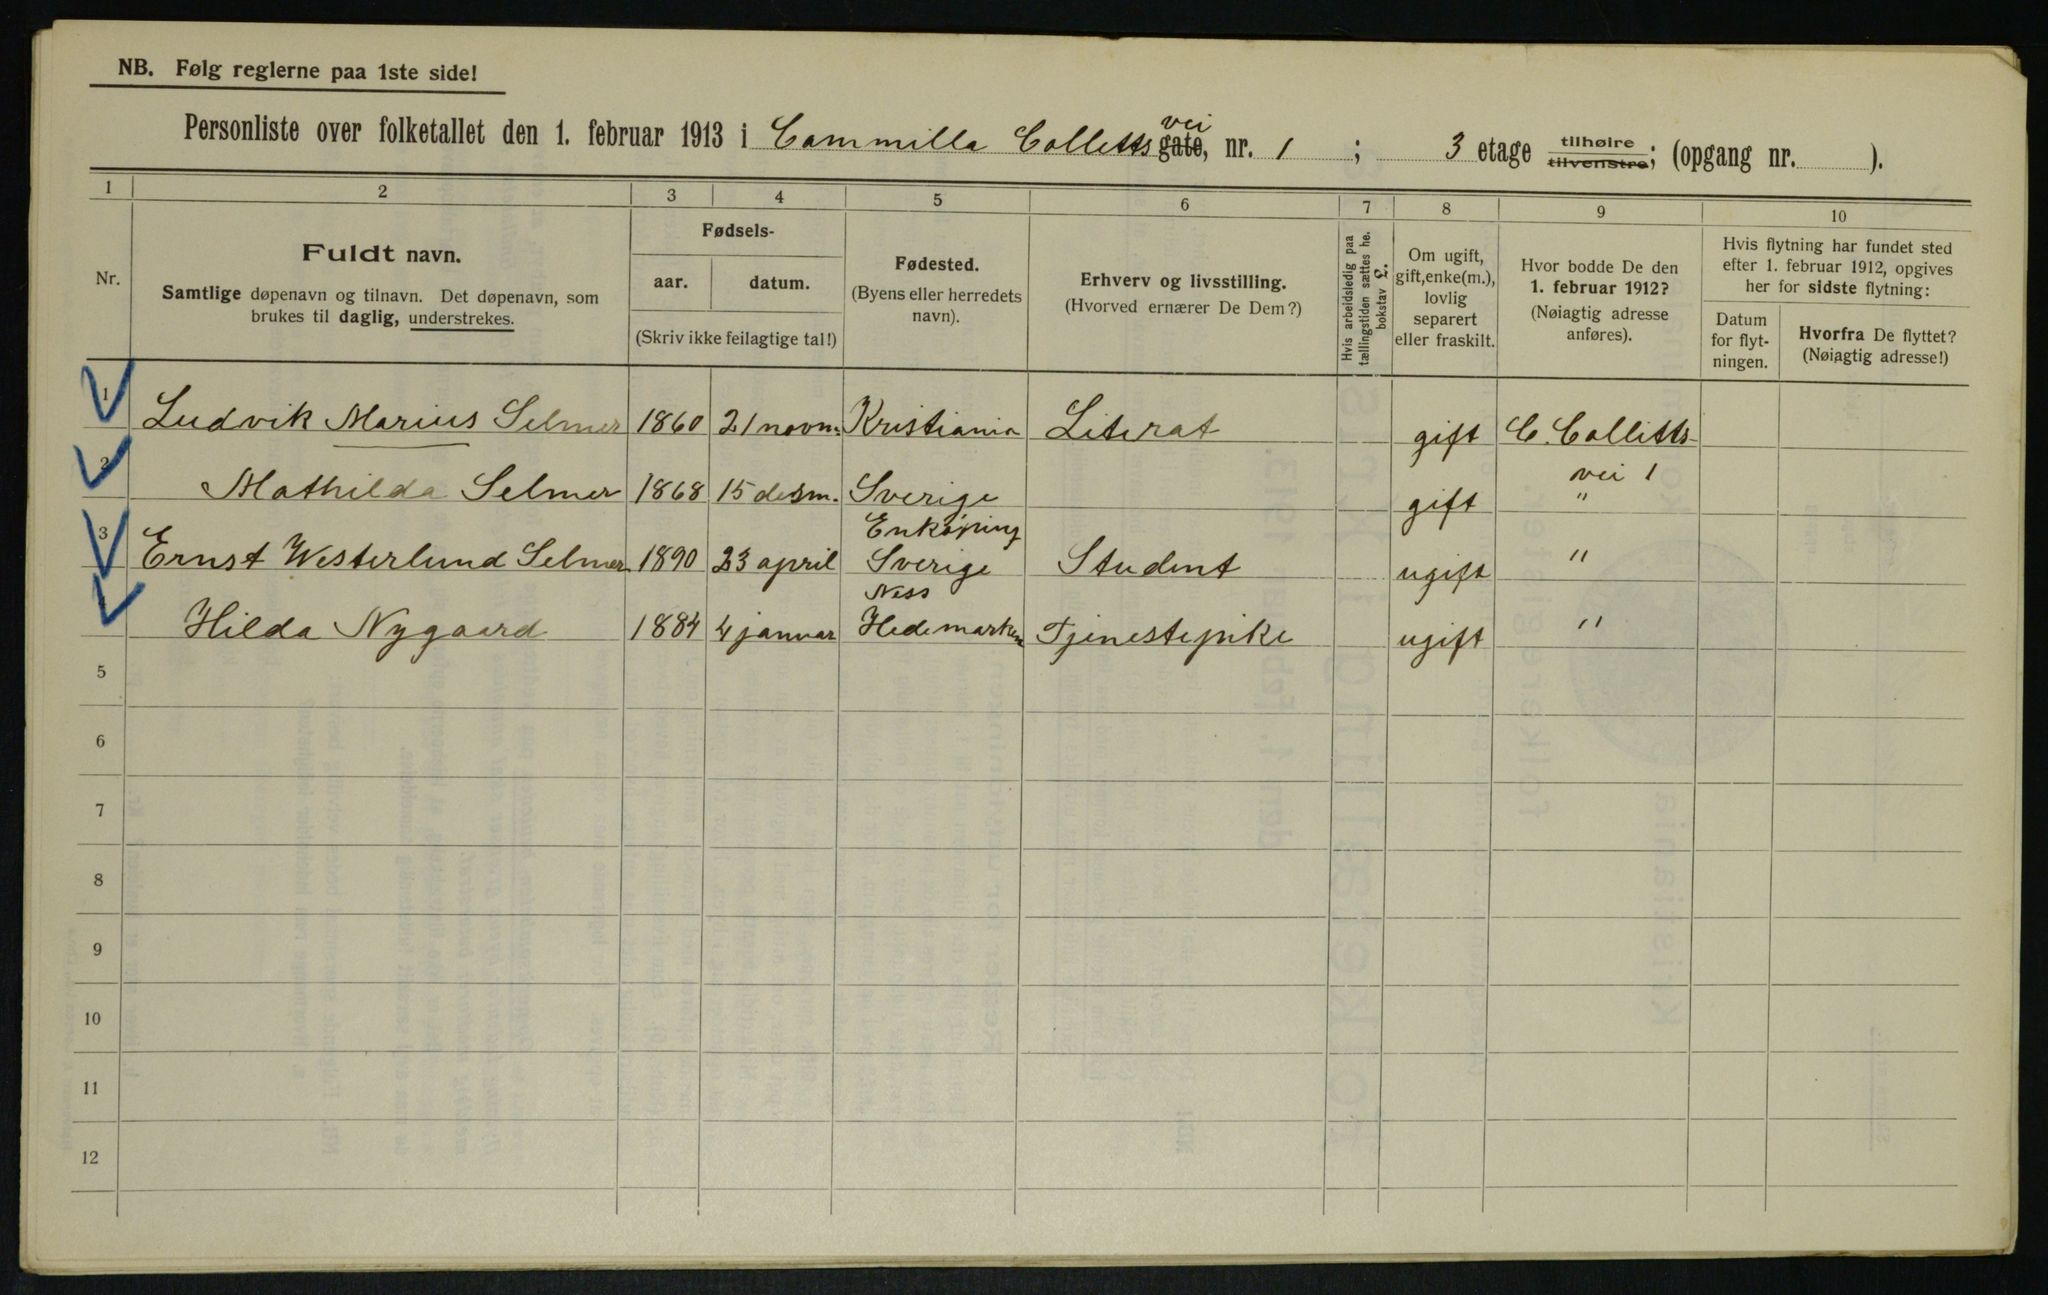 NB. Følg reglerne paa 1ste side!
Personliste over folketallet den 1. februar 1913 i Cammilla Colletts gate, vei nr. 1 ; 3 etage tilhøire tilvenstre; (opgang nr. ).
1 2 3 4 5 6 7 8 9 10
Nr.
Fuldt navn.
Samtlige døpenavn og tilnavn. Det døpenavn, som
brukes til daglig, understrekes.
Fødsels-
aar. datum.
(Skriv ikke feilagtige tal!)
Fødested.
(Byens eller herredets
navn).
Erhverv og livsstilling.
(Hvorved ernærer De Dem?)
Hvis arbeidsledig paa
tællingstiden sættes he.
bokstav £.
Om ugift,
gift, enke(m.),
lovlig
separert
eller fraskilt.
Hvor bodde De den
1. februar 1912?
(Nøiagtig adresse
anføres).
Hvis flytning har fundet sted
efter 1. februar 1912, opgives
her for sidste flytning:
Datum
for flyt-
ningen.
Hvorfra De flyttet?
(Nøiagtig adresse!)
1 Ludvik Marius Selmer 1860 21 novm. Kristiania Literat gift C. Collitts-
vei 1
2 Mathilda Selmer 1868 15 desm. Sverige gift "
Enkøping
3 Ernst Westerlund Selmer 1890 23 april Sverige Student ugift "
Ness
Hilda Nygaard 1884 4 januar Hedemarken Tjenestepike ugift "
5
6
7
8
9
10
11
12